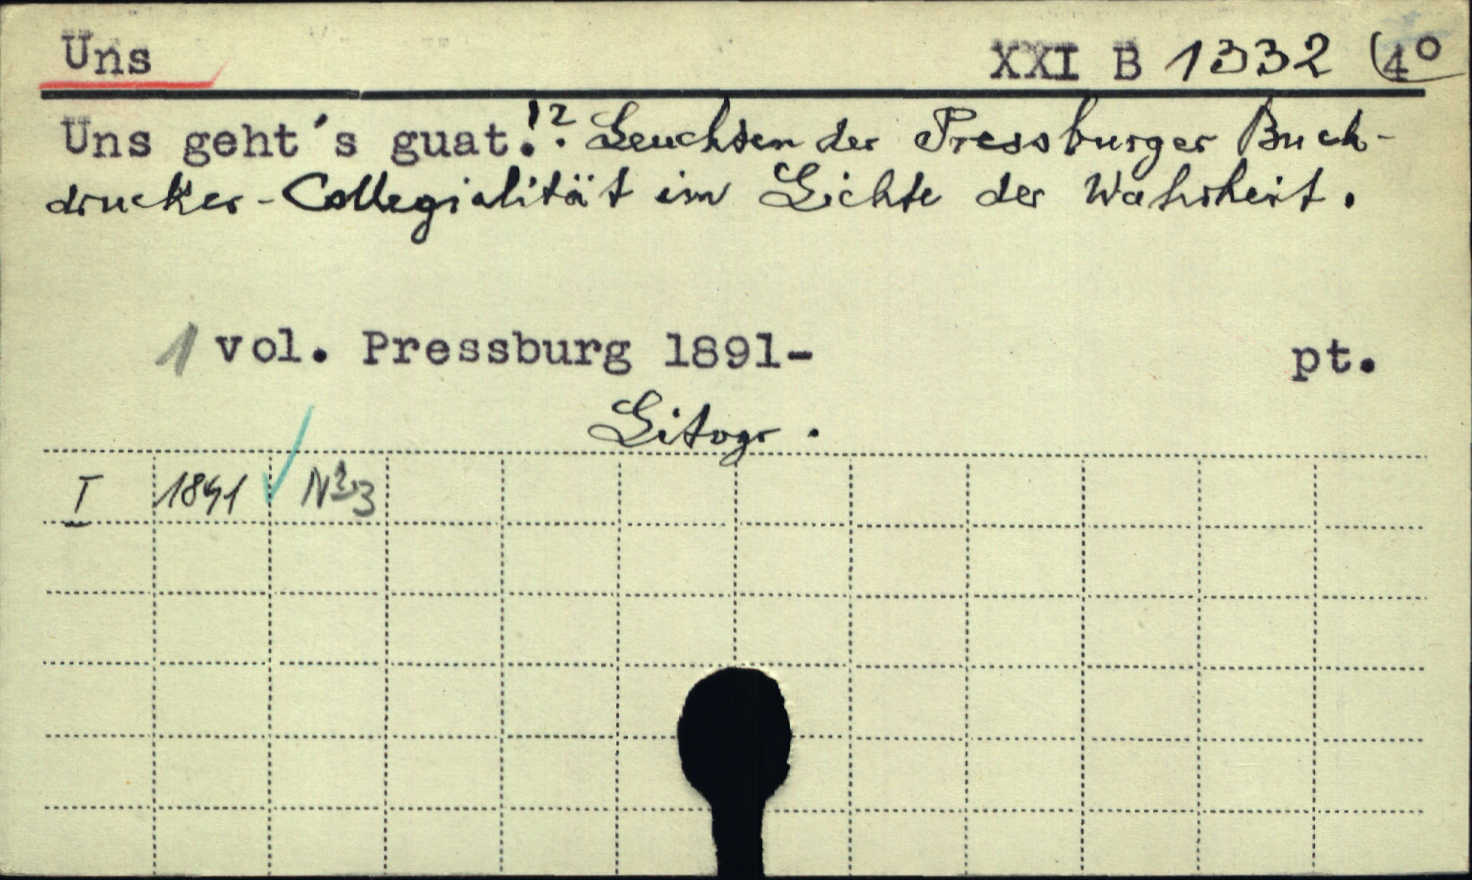 Uns XXI B 1332 (4°
Uns geht's guat!? Leuchten der Pressburger Buch-
drucker-Collegialität im Lichte der Wahrheit.
1 vol. Pressburg 1891- pt.
Litogr.
I 1891 № 3